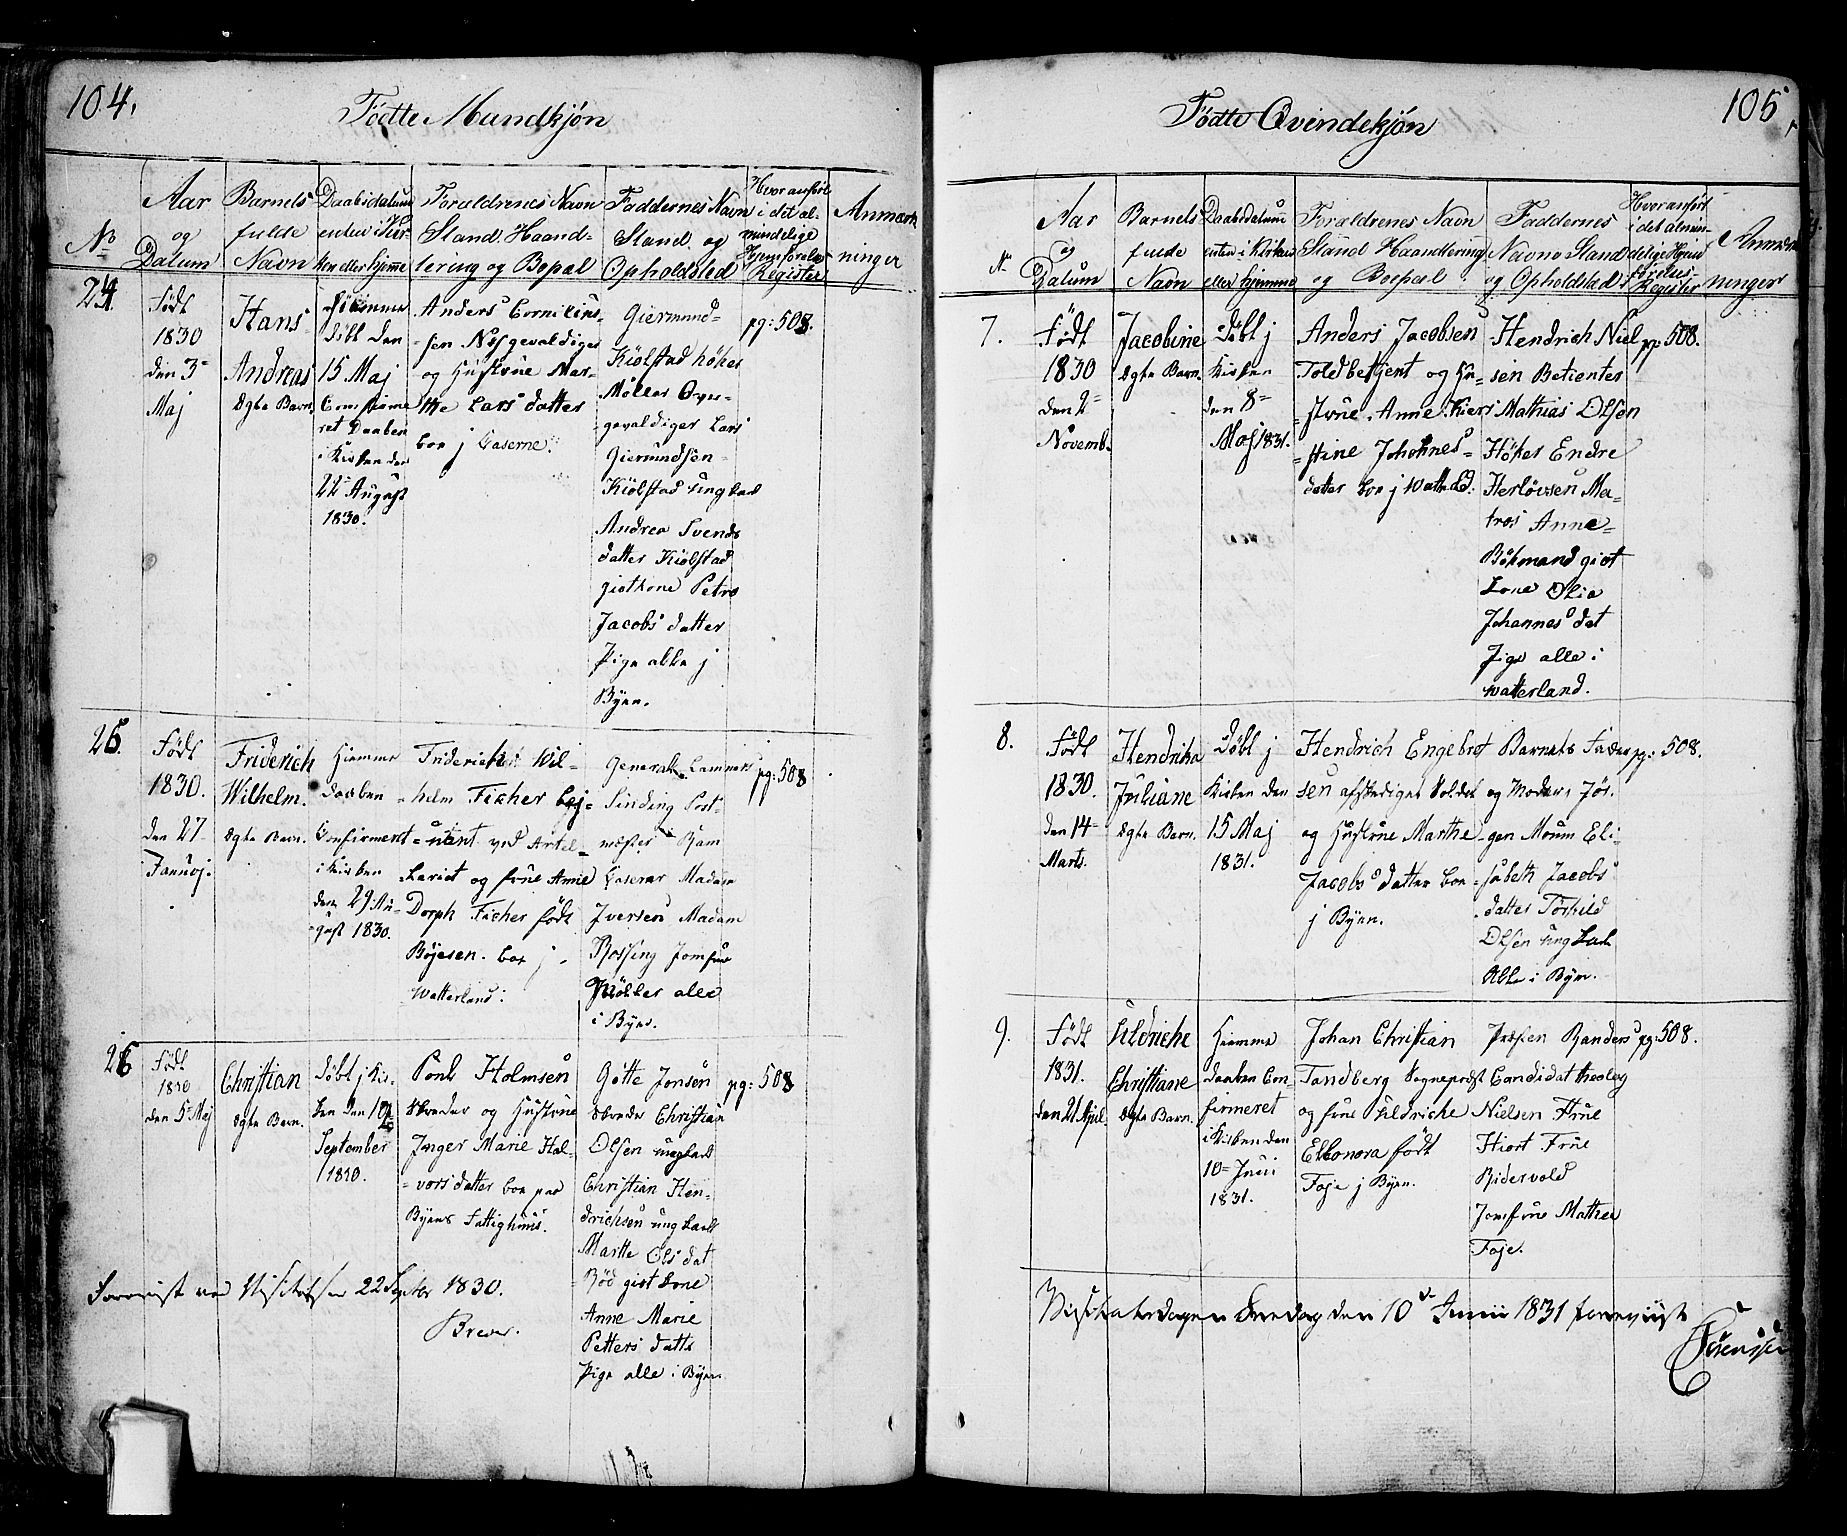 104.
Födte Mandkjön
No
Aar
og
Datum
Barnets
fulde
Navn
Daabsdatum
enten i Kir-
ken eller hjemme
Forældrenes Navn
Stand. Haand-
tering og Bopæl
Faddernes Navn
Stand. og
Opholdsted
Hvor anfört
i det al-
mindelige
Register
Anmærk
ninger
24
Födt
1830
den 3=
Maj
Hans
Andreas
Ægte Barn.
Hiemme
döbt den
15 Maj
Confirme
ret Daaben
i Kirken den
22= August
1830.
Anders Cornilius-
sen
og Hustrue Mar-
the Lars datter
boe j Caserne.
Giermund-
Kiölstad höker
Möller
gevaldiger Lars
Giermundsen
Kiölstad ungkad
Andrea Svends
datter Kiölstad
giot kone Petro
Jacobs datter
Pige alle j
Byen.
pg: 508.
25.
Födt
1830.
den 27
Januoj.
Friderich
Wilhelm.
Ægte Barn.
Hiemme
daaben
Confirmeret
i Kirken
den 29 Au-
gust 1830.
Friderich Wil-
helm Ficher
ved Artel-
leriet og frue Anne
Dorph Ficher födt
Böjesen. boe j
Watterland:
General Lammers
Sinding Post-
mester
Madam
Iversen Madam
Rossing Jomfrue
Möller alle
i Byen.
pg: 508
26
Födt
1830
den 5= Maj
Christian
Ægte Barn.
Döbt j Kir-
ken den 12
September
1830.
Poul Holmsen
Skreder og Hustrue
Inger Marie Hal-
vors datter boe paa
Byens Fattighuus.
Götte Jonsen
Skreder Christian
Olsen ungkarl
Christian Hen-
drichsen ungkarl
Marthe Ols dat
Röd giot kone
Anne Marie
Petters datte
Pige alle i Byen
pg: 508
Foreviist ved Visitatsen 22 Septbr 1830.
105.
Födte Qvindekjön
No
Aar
og
Datum
Barnets
fulde
Navn
Daabsdatum
enten i Kirken
eller hjemme
Forældrenes Navn
Stand Haandtering
og Bopæl
Faddernes
Navne Stand
og Opholdstæd
Hvor anfört
i det almin-
delige
Register
Anmærk
ninger
7.
Födt
1830
den 2=
Novemb.
Jacobine
Ægte Barn.
Döbt j
Kirken
den 8=
Maj 1831.
Anders Jacobsen
Toldbetjent og Hu-
strue. Anne Kier
stine Johannes-
datter boe j Watterld:
Hendrich Niel
sen Betienter
Mathias Olsen
Höker Endre
Herlövsen Ma-
tros Anne
Bökmand giot
kone Olia
Johannes dat
Pige alle i
Watterland.
pg: 508.
8.
Födt
1830.
den 14=
Marts.
Hendrika
Juliane
Ægte Barn.
Döbt j
Kirken den
15 Maj
1831.
Hendrich Engebret
sen afskediget Soldat
og Hustrue Marthe
Jacobs datter boe
j Byen.
Barnets Fader
og Moder Jör-
gen Moum Eli-
sabeth Jacobs
datter Törkild
Olsen ungkarl
Alle i Byen.
pg: 508.
9.
Födt
1831.
den 21 Apjel.
Uldriche
Christiane
Ægte Barn.
Hiemme
daaben Con-
firmeret
i Kirken den
10= Junii
1831.
Johan Christian
Tandberg Sognepræst
og frue Uldriche
Elleonora födt
Foje j Byen.
Provsten Randers
Candidat theolog
Nielsen Frue
Hiort Frue
Ridervold
Jomfrue Mathea
Foje.
pg: 508.
Visitatsdagen Fredag den 10de Junii 1831 foreviist
Sörenssen